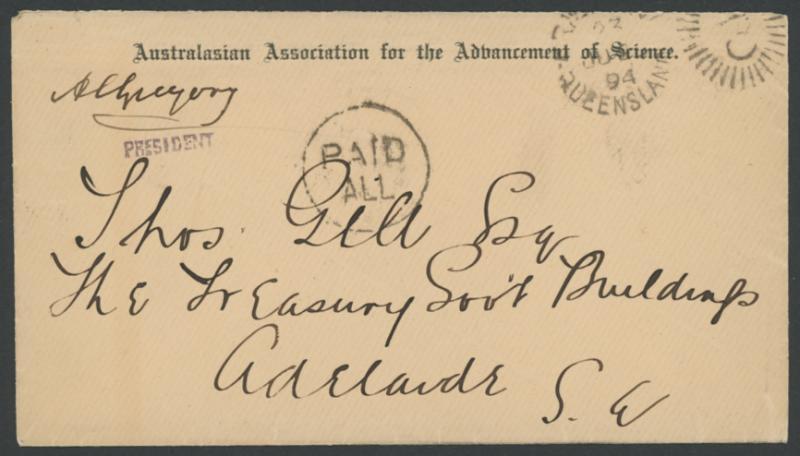 Australasian Association for the Advancement of Science.
23
94
QUEENSLAND
A C Gregory
PRESIDENT
PAID
ALL
Thos. Gill Esq
The Treasury Govt Buildings
Adelaide
S. A